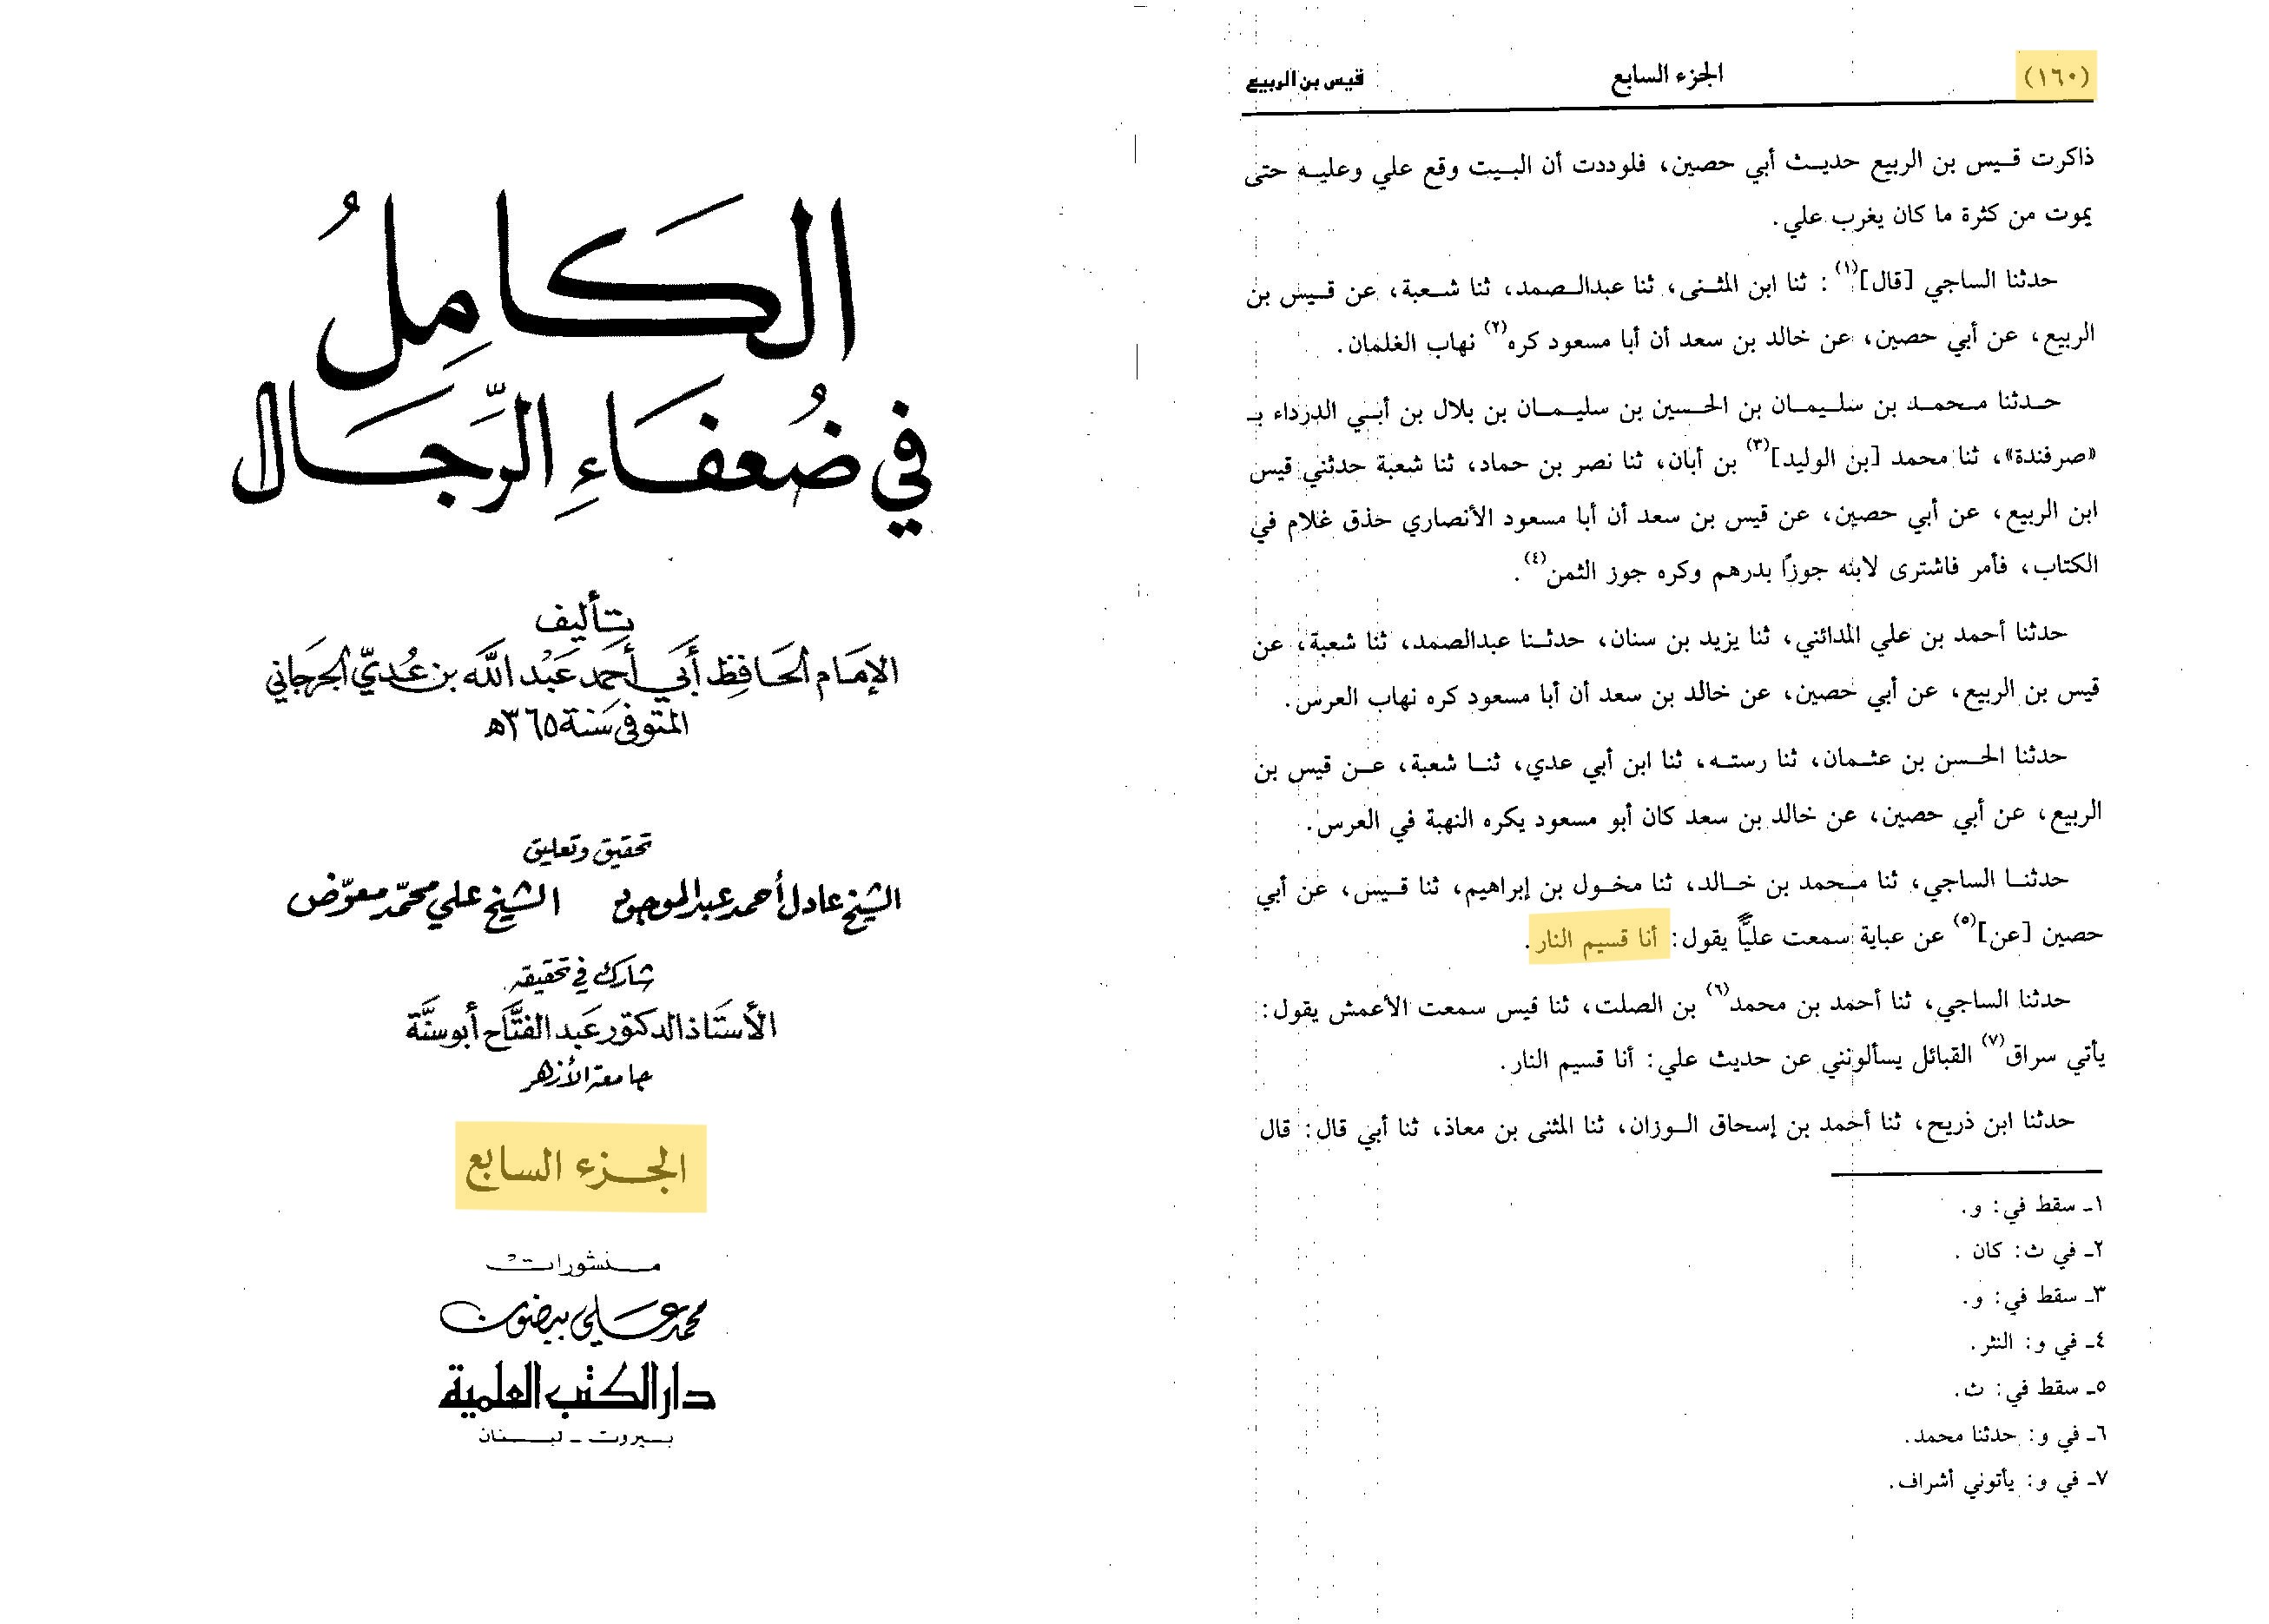 الكامل
في ضعفاء الرجال
تأليف
الإمام الحافظ أبي أحمد عبد الله بن عدي الجرجاني
المتوفى سنة ٣٦٥ه
تحقيق وتعليق
الشيخ عادل أحمد عبد الموجود الشيخ علي محمد معوض
شارك في تحقيقه
الأستاذ الدكتور عبد الفتاح أبو سنة
جامعة الأزهر
الجزء السابع
منشورات
محمد علي بيضون
دار الكتب العلمية
بيروت - لبنان
(١٦٠) الجزء السابع قيس بن الربيع
ذاكرت قيس بن الربيع حديث أبي حصين، فلوددت أن البيت وقع علي وعليه حتى
يموت من كثرة ما كان يغرب علي.
حدثنا الساجي [قال](١) : ثنا ابن المثنى، ثنا عبدالصمد، ثنا شعبة، عن قيس بن
الربيع، عن أبي حصين، عن خالد بن سعد أن أبا مسعود كره(٢) نهاب الغلمان.
حدثنا محمد بن سليمان بن الحسين بن سليمان بن بلال بن أبي الدرداء بـ
«صرفندة»، ثنا محمد [بن الوليد](٣) بن أبان، ثنا نصر بن حماد، ثنا شعبة حدثني قيس
ابن الربيع، عن أبي حصين، عن قيس بن سعد أن أبا مسعود الأنصاري حذق غلام في
الكتاب، فأمر فاشترى لابنه جوزًا بدرهم وكره جوز الثمن(٤).
حدثنا أحمد بن علي المدائني، ثنا يزيد بن سنان، حدثنا عبدالصمد، ثنا شعبة، عن
قيس بن الربيع، عن أبي حصين، عن خالد بن سعد أن أبا مسعود كره نهاب العرس.
حدثنا الحسن بن عثمان، ثنا رسته، ثنا ابن أبي عدي، ثنا شعبة، عن قيس بن
الربيع، عن أبي حصين، عن خالد بن سعد كان أبو مسعود يكره النهبة في العرس.
حدثنا الساجي، ثنا محمد بن خالد، ثنا مخول بن إبراهيم، ثنا قيس، عن أبي
حصين [عن](٥) عن عباية سمعت عليًّا يقول: أنا قسيم النار.
حدثنا الساجي، ثنا أحمد بن محمد(٦) بن الصلت، ثنا قيس سمعت الأعمش يقول:
يأتي سراق(٧) القبائل يسألونني عن حديث علي: أنا قسيم النار.
حدثنا ابن ذريح، ثنا أحمد بن إسحاق الوزان، ثنا المثنى بن معاذ، ثنا أبي قال: قال
١ـ سقط في: و.
٢ـ في ث: كان .
٣ـ سقط في: و.
٤ـ في و: النثر.
٥ـ سقط في: ث.
٦ـ في و: حدثنا محمد.
٧ـ في و: يأتوني أشراف.